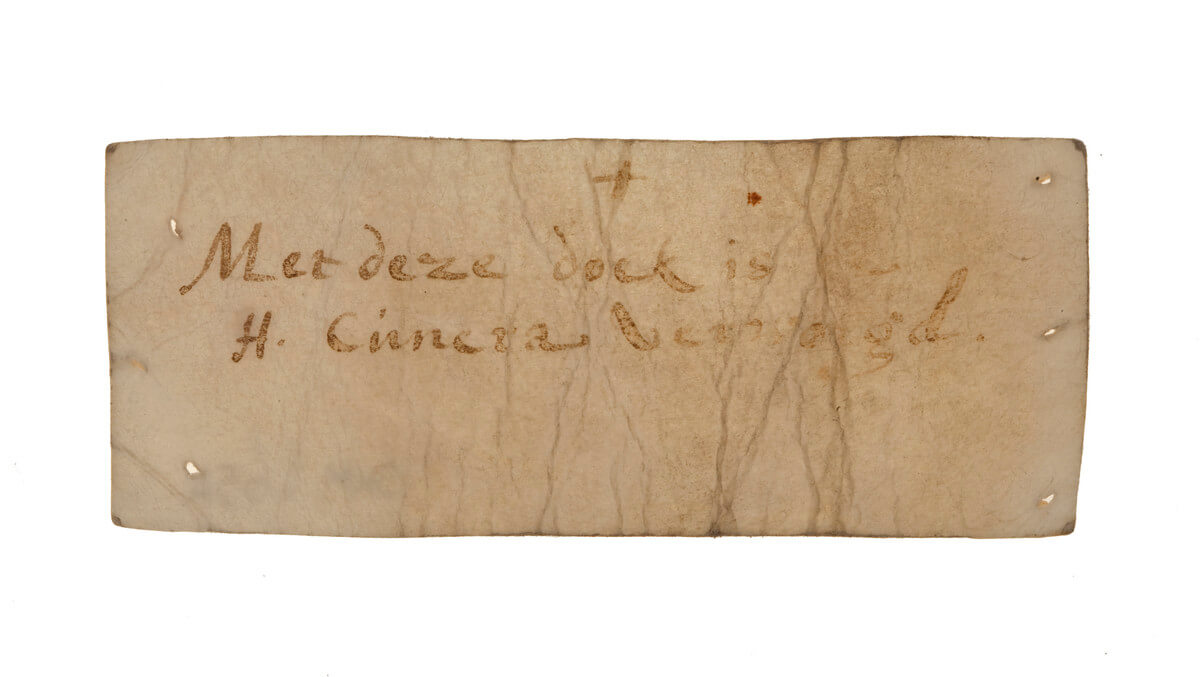 †
Met deze doek is
H. Cunera verworgd.